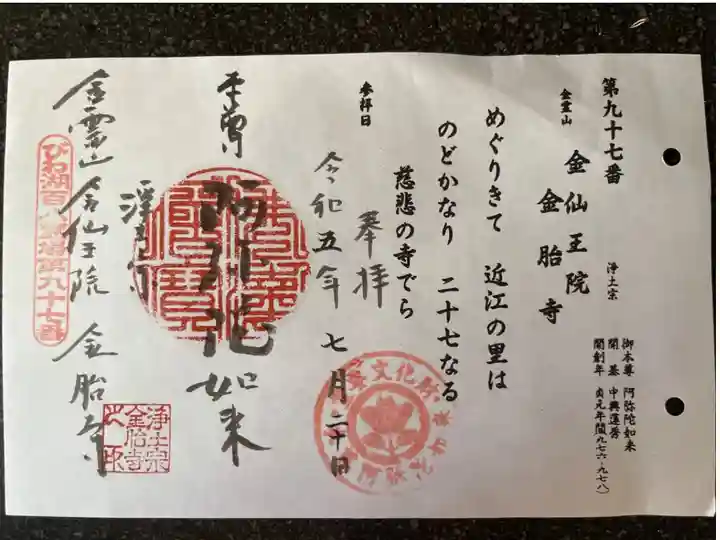 第九十七番
金霊山
金仙王院
金胎寺
浄土宗
御本尊 阿弥陀如来
開基 中興蓮秀
開創年 貞元年間(九七六-九七八)
めぐりきて 近江の里は
のどかなり 二十七なる
慈悲の寺でら
参拝日
奉拝
令和五年七月二十日
本尊
阿弥陀如来
浄土宗
金霊山金仙王院 金胎寺
びわ湖百八霊場第九十七番
浄土宗
金胎寺
之印